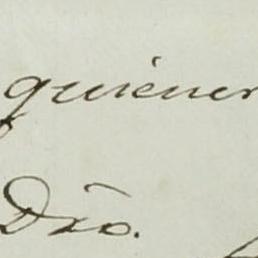 quienes
Dro.